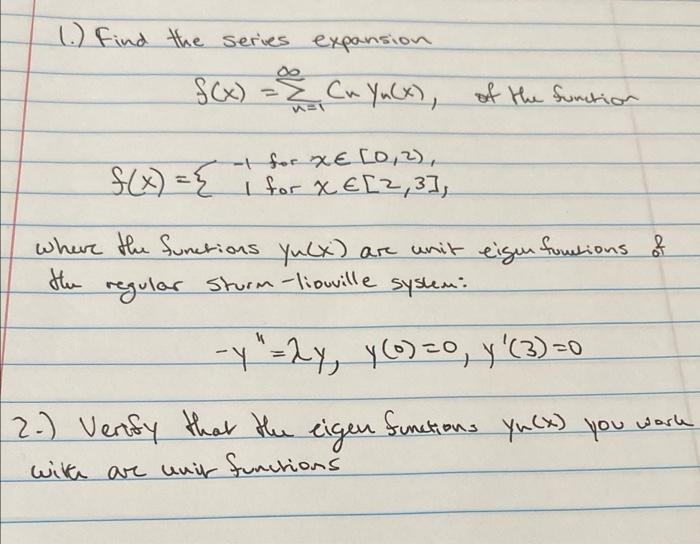 1.) Find the series expansion
f(x) = ∞ Σ n=1 Cn yn(x), of the function
f(x) = { -1 for x ∈ [0,2),
1 for x ∈ [2,3],
where the functions yn(x) are unit eigen functions of
the regular Sturm-liouville system:
-y" = λy, y(0)=0, y'(3)=0
2.) Verify that the eigen functions yn(x) you work
with are unit functions